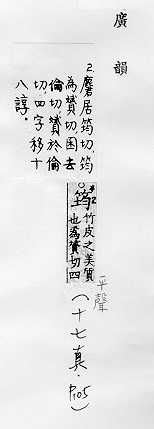 廣韻
2. 麏居筠切,筠
為贇切囷去
倫切贇於倫
切,四字移十
八諄。
筠 竹皮之美質
也為贇切四
平聲
(十七真·P105)